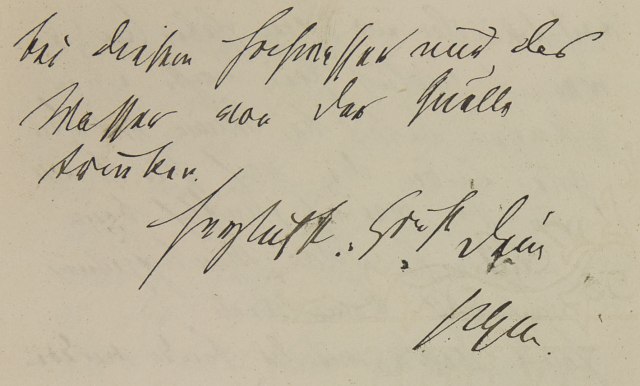 bei diesem Hochwasser nur das
Wasser von der Quelle
trinken.
Herzlichst. Grüßt Dein